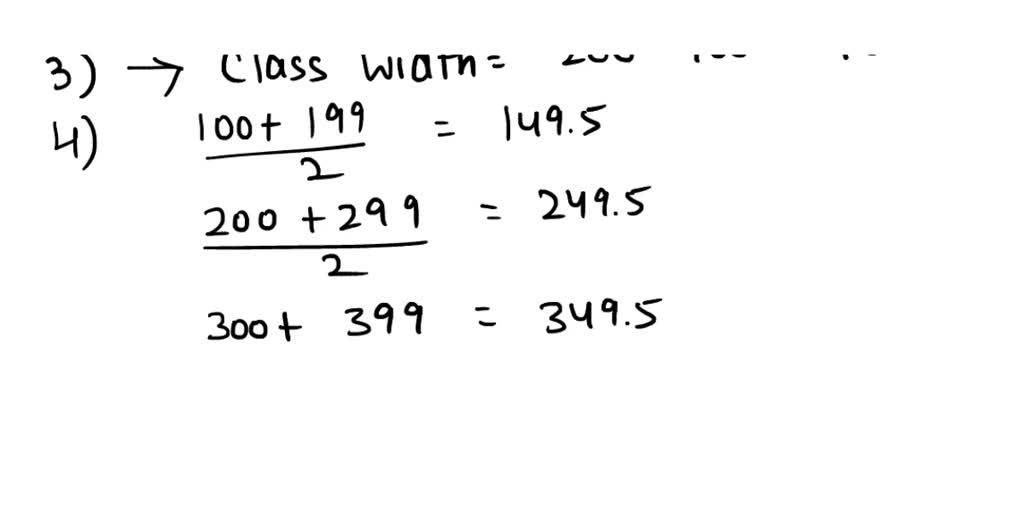 3) → Class width =
4) 100 + 199 = 149.5
2
200 + 299 = 249.5
2
300 + 399 = 349.5